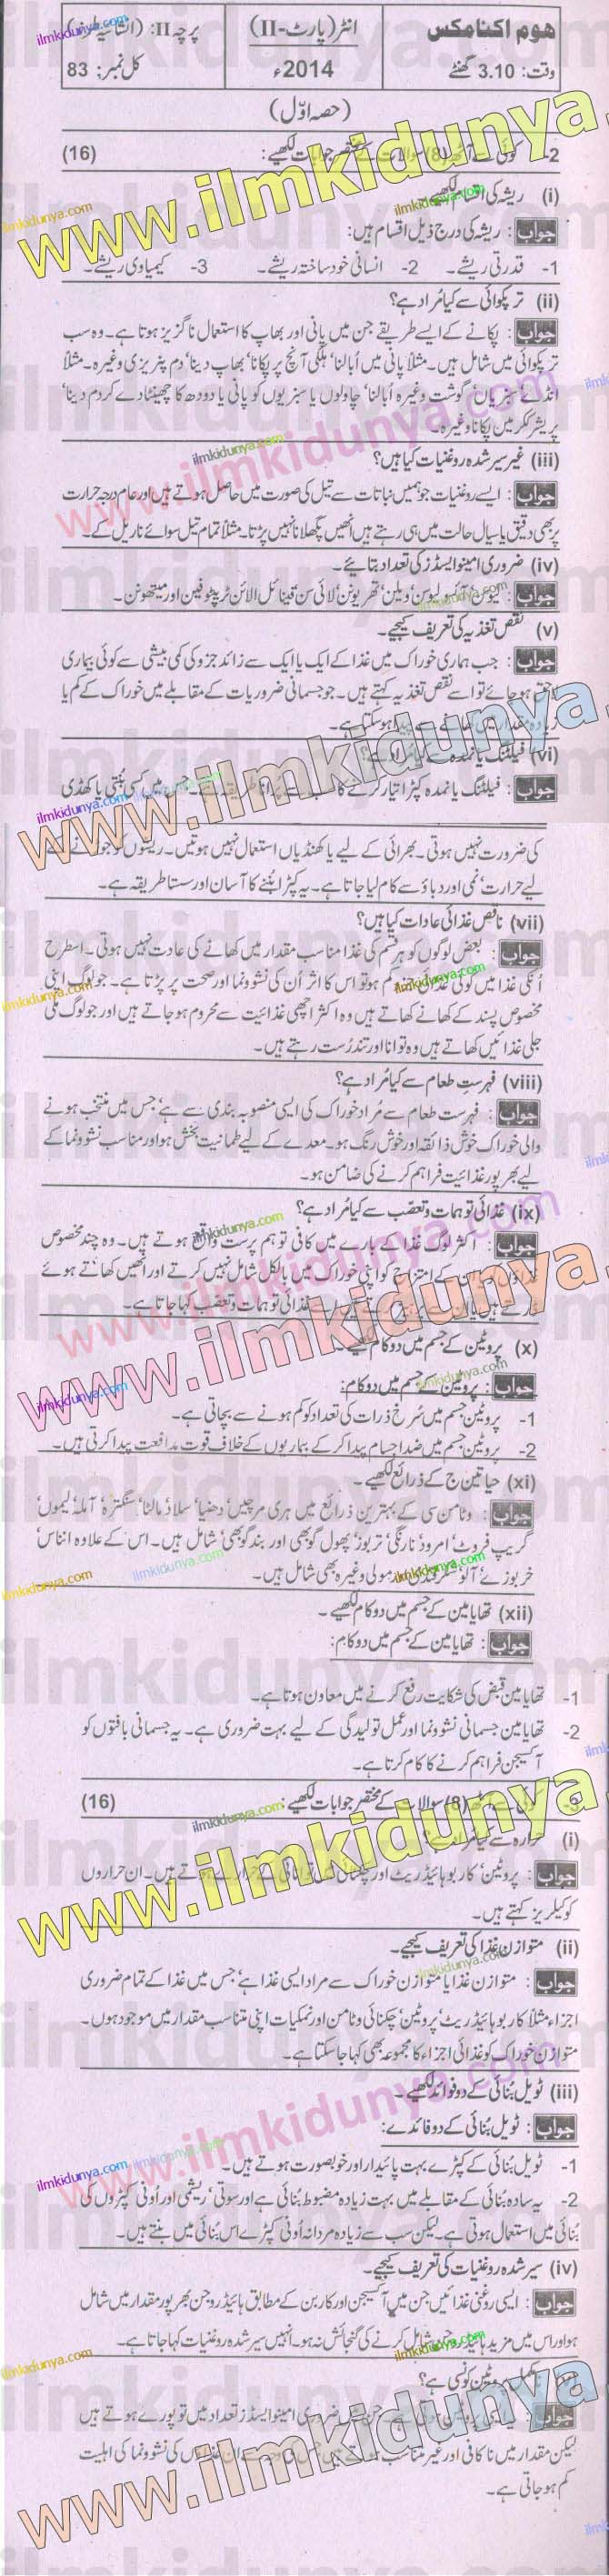 ہوم اکنامکس
انٹر (پارٹ-II)
پرچہ II: (انشائیہ طرز)
وقت: 3.10 گھنٹے
2014ء
کل نمبر: 83
(حصہ اوّل)
2- کوئی سے آٹھ (8) سوالات کے مختصر جوابات لکھیے: (16)
(i) ریشہ کی اقسام لکھیے۔
جواب : ریشہ کی درج ذیل اقسام ہیں:
1- قدرتی ریشے۔ 2- انسانی خود ساختہ ریشے۔ 3- کیمیاوی ریشے۔
(ii) تر پکوائی سے کیا مُراد ہے؟
جواب : پکانے کے ایسے طریقے جن میں پانی اور بھاپ کا استعمال ناگزیر ہوتا ہے۔ وہ سب
تر پکوائی میں شامل ہیں۔ مثلاً پانی میں اُبالنا‘ ہلکی آنچ پر پکانا‘ بھاپ دینا‘ دم پذیری وغیرہ۔ مثلاً
انڈے‘ سبزیاں‘ گوشت وغیرہ اُبالنا‘ چاولوں یا سبزیوں کو پانی یا دودھ کا چھینٹا دے کر دم دینا‘
پریشر ککر میں پکانا وغیرہ۔
(iii) غیر سیر شدہ روغنیات کیا ہیں؟
جواب : ایسے روغنیات جو ہمیں نباتات سے تیل کی صورت میں حاصل ہوتے ہیں اور عام درجہ حرارت
پر بھی دقیق یا سیال حالت میں ہی رہتے ہیں انھیں پگھلانا نہیں پڑتا۔ مثلاً تمام تیل سوائے ناریل کے۔
(iv) ضروری امینو ایسڈز کی تعداد بتایئے۔
جواب : لیوسن‘ آئسولیوسن‘ ویلین‘ تھریونن‘ لائی سن‘ فینائل الانن‘ ٹرپٹوفین اور میتھونن۔
(v) نقص تغذیہ کی تعریف کیجیے۔
جواب : جب ہماری خوراک میں غذا کے ایک یا ایک سے زائد جزو کی کمی بیشی سے کوئی بیماری
لاحق ہو جائے تو اسے نقص تغذیہ کہتے ہیں۔ جو جسمانی ضروریات کے مقابلے میں خوراک کے کم یا
زیادہ مقدار میں کھانے سے پیدا ہو سکتا ہے۔
(vi) فیلٹنگ یا نمدہ سے کیا مُراد ہے؟
جواب : فیلٹنگ یا نمدہ کپڑا تیار کرنے کا سب سے پُرانا طریقہ ہے۔ جس میں کسی بُنتی یا کھڈی
کی ضرورت نہیں ہوتی۔ بھرائی کے لیے یا کھڈیاں استعمال نہیں ہوتیں۔ ریشوں کو جوڑنے کے
لیے حرارت‘ نمی اور دباؤ سے کام لیا جاتا ہے۔ یہ کپڑا بُننے کا آسان اور سستا طریقہ ہے۔
(vii) ناقص غذائی عادات کیا ہیں؟
جواب : بعض لوگوں کو ہر قسم کی غذا مناسب مقدار میں کھانے کی عادت نہیں ہوتی۔ اسطرح
اُنکی غذا میں کوئی غذائی جزو کم ہو تو اس کا اثر اُن کی نشوونما اور صحت پر پڑتا ہے۔ جو لوگ اپنی
مخصوص پسند کے کھانے کھاتے ہیں وہ اکثر اچھی غذائیت سے محروم ہو جاتے ہیں اور جو لوگ ملی
جلی غذائیں کھاتے ہیں وہ توانا اور تندرُست رہتے ہیں۔
(viii) فہرست طعام سے کیا مُراد ہے؟
جواب : فہرست طعام سے مُراد خوراک کی ایسی منصوبہ بندی سے ہے‘ جس میں منتخب ہونے
والی خوراک خوش ذائقہ اور خوش رنگ ہو۔ معدے کے لیے طمانیت بخش ہو اور مناسب نشوونما کے
لیے بھرپور غذائیت فراہم کرنے کی ضامن ہو۔
(ix) غذائی توہمات و تعصّب سے کیا مُراد ہے؟
جواب : اکثر لوگ غذا کے بارے میں کافی توہم پرست واقع ہوتے ہیں۔ وہ چند مخصوص
غذاؤں کو ان کے امتزاج کو اپنی خوراک میں بالکل شامل نہیں کرتے اور انھیں کھاتے ہوئے
ڈرتے ہیں یا ان سے پرہیز کرتے ہیں۔ اسے غذائی توہمات و تعصّب کہا جاتا ہے۔
(x) پروٹین کے جسم میں دو کام لکھیے۔
جواب : پروٹین کے جسم میں دو کام:
1- پروٹین جسم میں سُرخ ذرات کی تعداد کو کم ہونے سے بچاتی ہے۔
2- پروٹین جسم میں ضد اجسام پیدا کر کے بیماریوں کے خلاف قوت مدافعت پیدا کرتی ہیں۔
(xi) حیاتین ج کے ذرائع لکھیے۔
جواب : وٹامن سی کے بہترین ذرائع میں ہری مرچیں‘ دھنیا‘ سلاد‘ مالٹا‘ سنگترہ‘ آملہ‘ لیموں‘
گریپ فروٹ‘ امرود‘ نارنگی‘ تربوز‘ پھول گوبھی اور بند گوبھی‘ شامل ہیں۔ اس کے علاوہ انناس‘
خربوزے‘ آلو‘ شکرقندی‘ مولی وغیرہ بھی شامل ہیں۔
(xii) تھایامین کے جسم میں دو کام لکھیے۔
جواب : تھایامین کے جسم میں دو کام:
1- تھایامین قبض کی شکایت رفع کرنے میں معاون ہوتا ہے۔
2- تھایامین جسمانی نشوونما اور عمل تولیدگی کے لیے بہت ضروری ہے۔ یہ جسمانی بافتوں کو
آکسیجن فراہم کرنے کا کام کرتا ہے۔
3- کوئی سے آٹھ (8) سوالات کے مختصر جوابات لکھیے: (16)
(i) حرارہ سے کیا مُراد ہے؟
جواب : پروٹین‘ کاربوہائیڈریٹ اور چکنائی میں توانائی کے حرارے ہوتے ہیں۔ ان حراروں
کو کیلریز کہتے ہیں۔
(ii) متوازن غذا کی تعریف کیجیے۔
جواب : متوازن غذا یا متوازن خوراک سے مراد ایسی غذا ہے‘ جس میں غذا کے تمام ضروری
اجزاء مثلاً کاربوہائیڈریٹ‘ پروٹین‘ چکنائی وٹامن اور نمکیات اپنی متناسب مقدار میں موجود ہوں۔
متوازن خوراک کو غذائی اجزاء کا مجموعہ بھی کہا جا سکتا ہے۔
(iii) ٹویل بُنائی کے دو فوائد لکھیے۔
جواب : ٹویل بُنائی کے دو فائدے:
1- ٹویل بُنائی کے کپڑے بہت پائیدار اور خوبصورت ہوتے ہیں۔
2- یہ سادہ بُنائی کے مقابلے میں بہت زیادہ مضبوط بُنائی ہے اور سوتی‘ ریشمی اور اُونی کپڑوں کی
بُنائی میں استعمال ہوتی ہے۔ لیکن سب سے زیادہ مردانہ اُونی کپڑے اس بُنائی میں بنتے ہیں۔
(iv) سیر شدہ روغنیات کی تعریف کیجیے۔
جواب : ایسی روغنی غذائیں جن میں آکسیجن اور کاربن کے مطابق ہائیڈروجن بھرپور مقدار میں شامل
ہو اور اس میں مزید ہائیڈروجن شامل کرنے کی گنجائش نہ ہو۔ انہیں سیر شدہ روغنیات کہا جاتا ہے۔
پروٹین کونسی ہے؟
جواب : ضروری امینو ایسڈز تعداد میں تو پورے ہوتے ہیں
لیکن مقدار میں ناکافی اور غیر مناسب ہوتے ہیں جس کی وجہ سے ان غذاؤں کی نشوونما کی اہلیت
کم ہو جاتی ہے۔
www.ilmkidunya.com